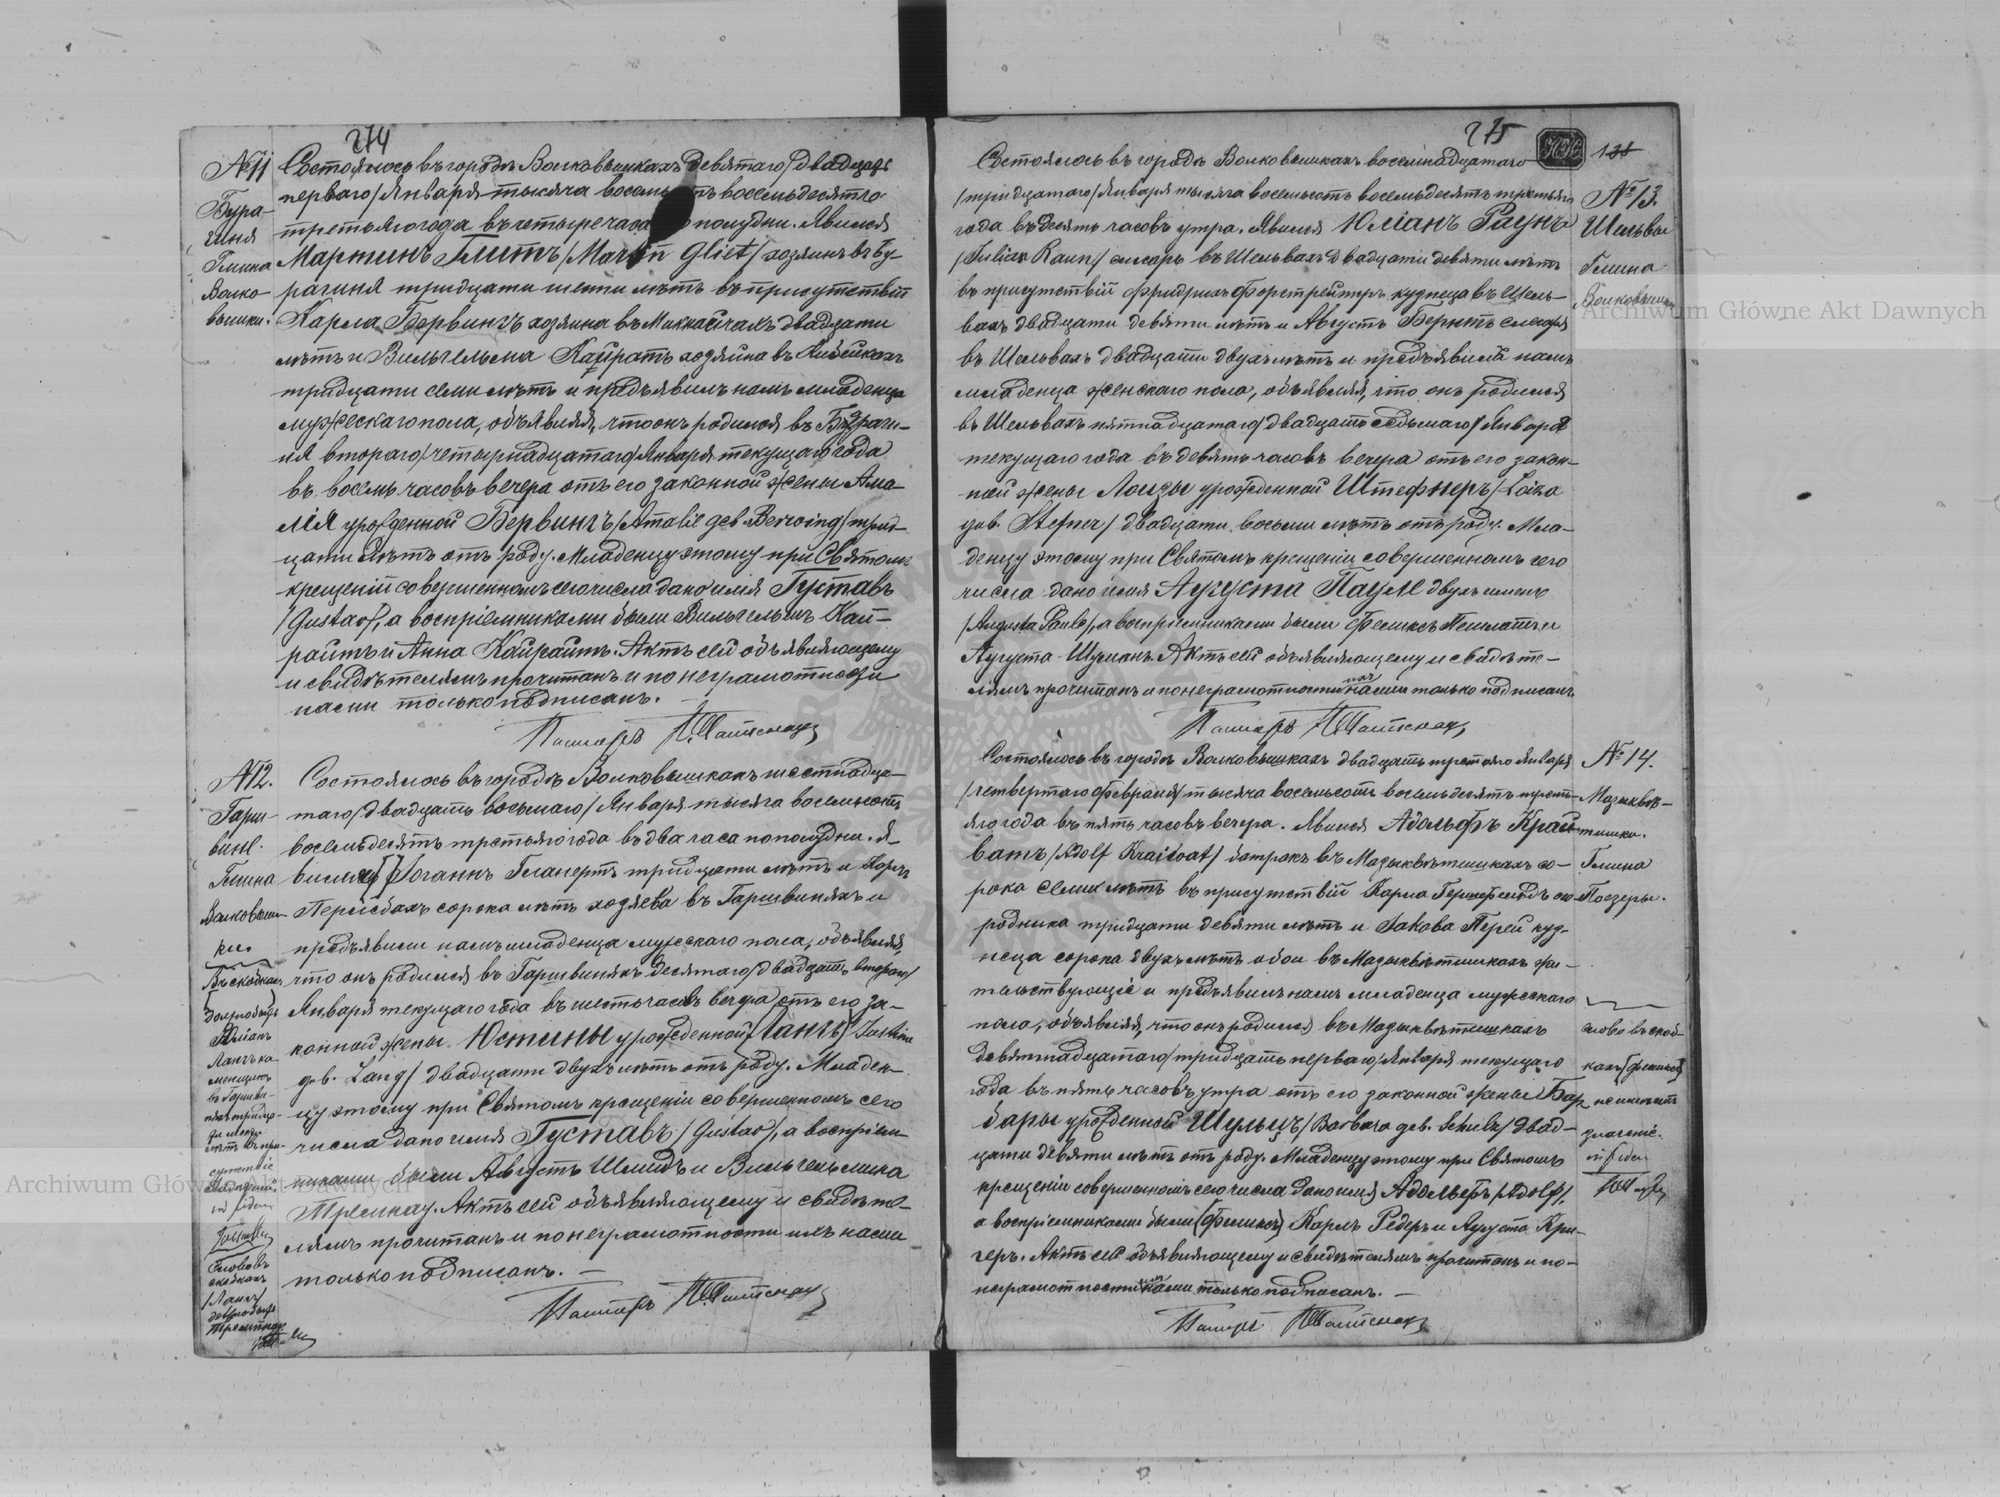 274
№ 11
Бурагиня
Гмина
Волковышки.
Состоялось въ городѣ Волковышкахъ девятаго /двадцать
перваго/ Января тысяча восемь въ восемьдесятъ
третьяго года въ четыре часа пополудни. Явился
Мартинъ Глитъ /Martin Gliet/ хозяинъ въ Бу-
рагиня тридцати шести лѣтъ въ присутствіи
Карла Бервингъ хозяина въ двадцати
лѣтъ и Вильгельма Кайратъ хозяина въ
тридцати семи лѣтъ и предъявилъ намъ младенца
мужескаго пола, объявляя, что онъ родился въ Бураги-
ня втораго /четырнадцатаго/ Января текущаго года
въ восемь часовъ вечера отъ его законной жены Ама-
лія урожденной Бервингъ /Amalie geb Berwing/ трид-
цати лѣтъ отъ роду. Младенцу этому при Святомъ
крещеніи совершенномъ сего числа дано имя Густавъ
/Gustav/, а воспріемниками были Вильгельмъ Кай-
райтъ и Анна Кайрайтъ. Актъ сей объявляющему
и свидѣтелямъ прочитанъ и по неграмотности
нами только подписанъ. —
Пасторъ
№ 12.
Гарш-
вине.
Гмина
Волковыш-
ки.
Состоялось въ городѣ Волковышкахъ шестнадца-
таго /двадцать восьмаго/ Января тысяча восемьсотъ
восемьдесятъ третьяго года въ два часа пополудни. Я-
вился Іоганнъ Глагертъ тридцати лѣтъ и
сорока лѣтъ хозяева въ Гаршвиняхъ и
предъявили намъ младенца мужескаго пола, объявляя,
что онъ родился въ Гаршвиняхъ десятаго /двадцать втораго/
Января текущаго года въ шесть часовъ вечера отъ его за-
конной жены Юстины урожденной (Лангъ) /Justine
geb. Lang/ двадцати двухъ лѣтъ отъ роду. Младен-
цу этому при Святомъ крещеніи совершенномъ сего
числа дано имя Густавъ /Gustav/, а воспріем-
никами были Августъ Шмидъ и Вильгельмина
Тремпау. Актъ сей объявляющему и свидѣте-
лямъ прочитанъ и по неграмотности ихъ нами
только подписанъ. —
Пасторъ
Въ скобкахъ
Лангъ ка-
менщикъ
въ Гаршви-
няхъ тридца-
ти
лѣтъ въ при-
сутствіе
in fidem
Слово въ
скобкахъ
/Лангъ/
275
138
№ 13.
Шельвы
Гмина
Волковышки
Состоялось въ городѣ Волковышкахъ восемнадцатаго
/тридцатаго/ Января тысяча восемьсотъ восемьдесятъ третьяго
года въ десять часовъ утра. Явился Юліанъ Раунъ
/Julian Raun/ слесарь въ Шельвахъ двадцати девяти лѣтъ
въ присутствіи Фридриха Форстрейтеръ кузнеца въ Шель-
вахъ двадцати девяти лѣтъ и Августъ Берентъ слесаря
въ Шельвахъ двадцати двухъ лѣтъ и предъявилъ намъ
младенца женскаго пола, объявляя, что онъ родился
въ Шельвахъ пятнадцатаго /двадцать седьмаго/ Января
текущаго года въ девять часовъ вечера отъ его закон-
ной жены Лоизы урожденной Штефнеръ /Loisa
geb. Stefner/ двадцати восьми лѣтъ отъ роду. Мла-
денцу этому при Святомъ крещеніи совершенномъ сего
числа дано имя Аугуста Пауле двухъ именъ
/Augusta Paule/, а воспріемниками были Феликсъ и
Аугуста Шуманъ. Актъ сей объявляющему и свидѣте-
лямъ прочитанъ и по неграмотности ихъ нами только подписанъ
Пасторъ
№ 14.
Мазыквѣ-
тишки.
Гмина
Поезеры.
Состоялось въ городѣ Волковышкахъ двадцать третьяго Января
/четвертаго Февраля/ тысяча восемьсотъ восемьдесятъ треть-
яго года въ пять часовъ вечера. Явился Адольфъ Край-
ватъ /Adolf Kraiwat/ батракъ въ Мазыквѣтишкахъ со-
рока семи лѣтъ въ присутствіи Карла ого-
родника тридцати девяти лѣтъ и Іакова Перей куз-
неца сорока двухъ лѣтъ обои въ Мазыквѣтишкахъ жи-
тельствующіе и предъявилъ намъ младенца мужескаго
пола, объявляя, что онъ родился въ Мазыквѣтишкахъ
девятнадцатаго /тридцать перваго/ Января текущаго
года въ пять часовъ утра отъ его законной жены Бар-
бары урожденной Шульцъ /Barbara geb. Schulz/ двад-
цати девяти лѣтъ отъ роду. Младенцу этому при Святомъ
крещеніи совершенномъ сего числа дано имя Адольфъ /Adolf/.
а воспріемниками были (Феликсъ) Карлъ Редеръ и Аугуста Кри-
геръ. Актъ сей объявляющему и свидѣтелямъ прочитанъ и по-
неграмотности ихъ нами только подписанъ. —
Пасторъ
слово въ скоб-
кахъ (Феликсъ)
не имѣетъ
значеніе.
in fidem
Archiwum Główne Akt Dawnych
Archiwum Główne Akt Dawnych